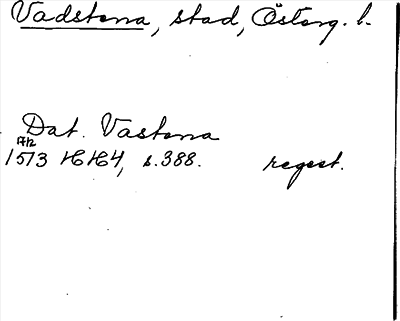 Vadstena, stad, Österg. l.
Dat. Vastena
17/2
1573 HH4, s.388. regest.